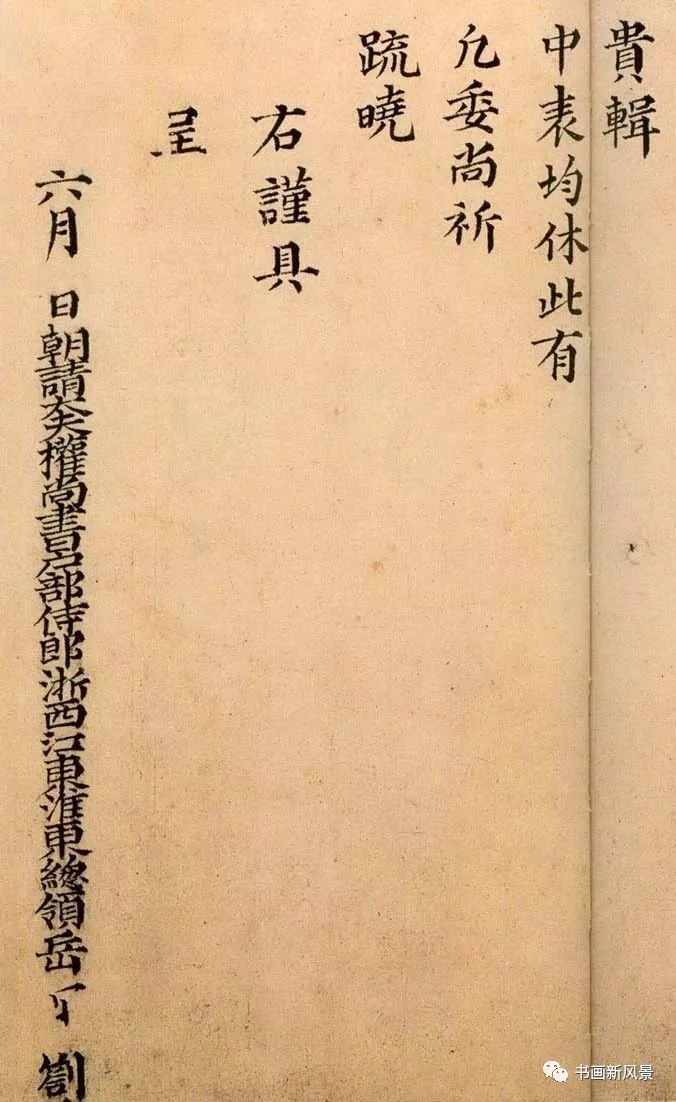 貴輯
中表均休此有
凡委尚祈
疏曉
右謹具
呈
六月 日朝請大夫權尚書戶部侍郎浙西江東淮東總領岳 劄
书画新风景